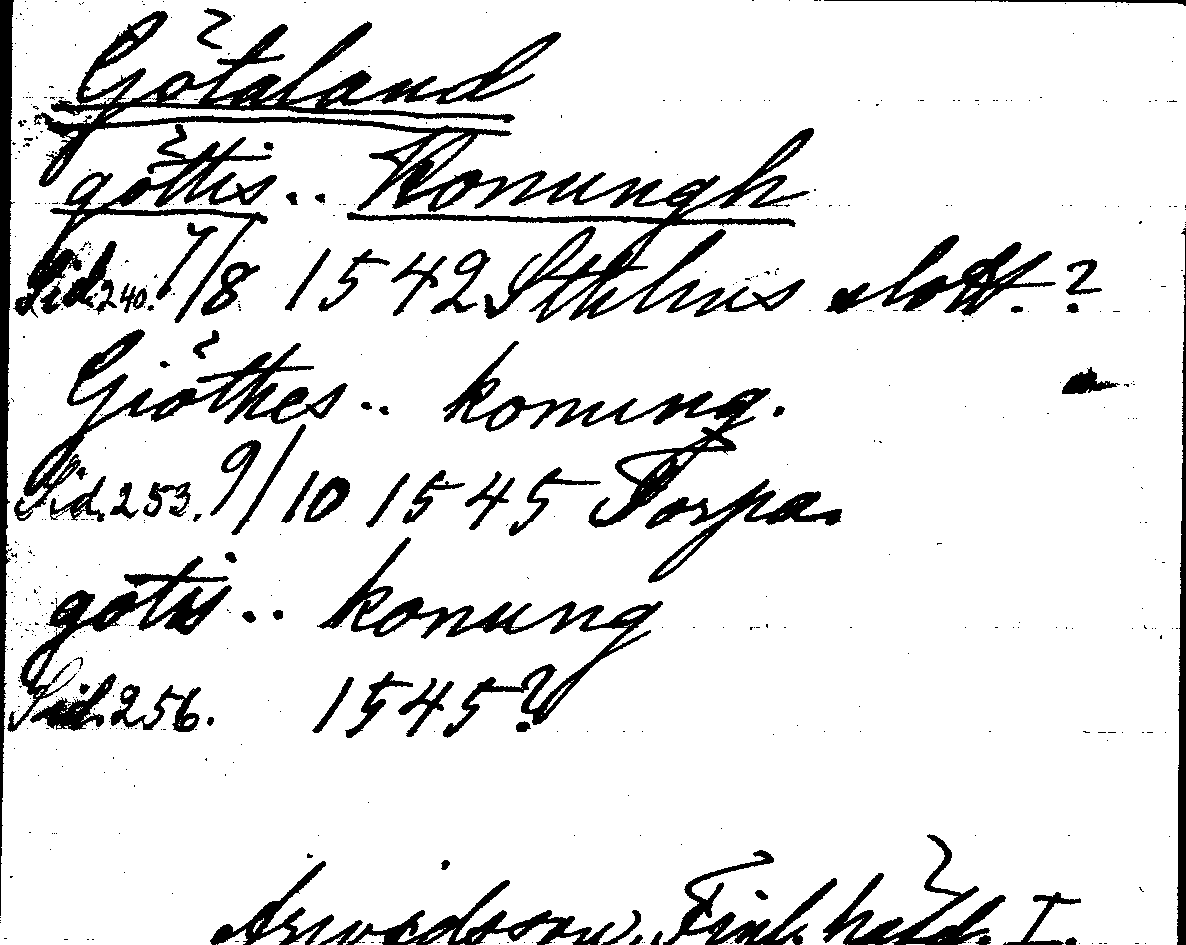 Götaland
göttis.. Konungh
Sid. 240. 7/8 1542 Sthlms slott. ?
Giöthes.. konung.
Sid. 253. 9/10 1545 Torpa.
götis.. konung
Sid. 256. 1545?
Arwidsson, Finl. hand. I.